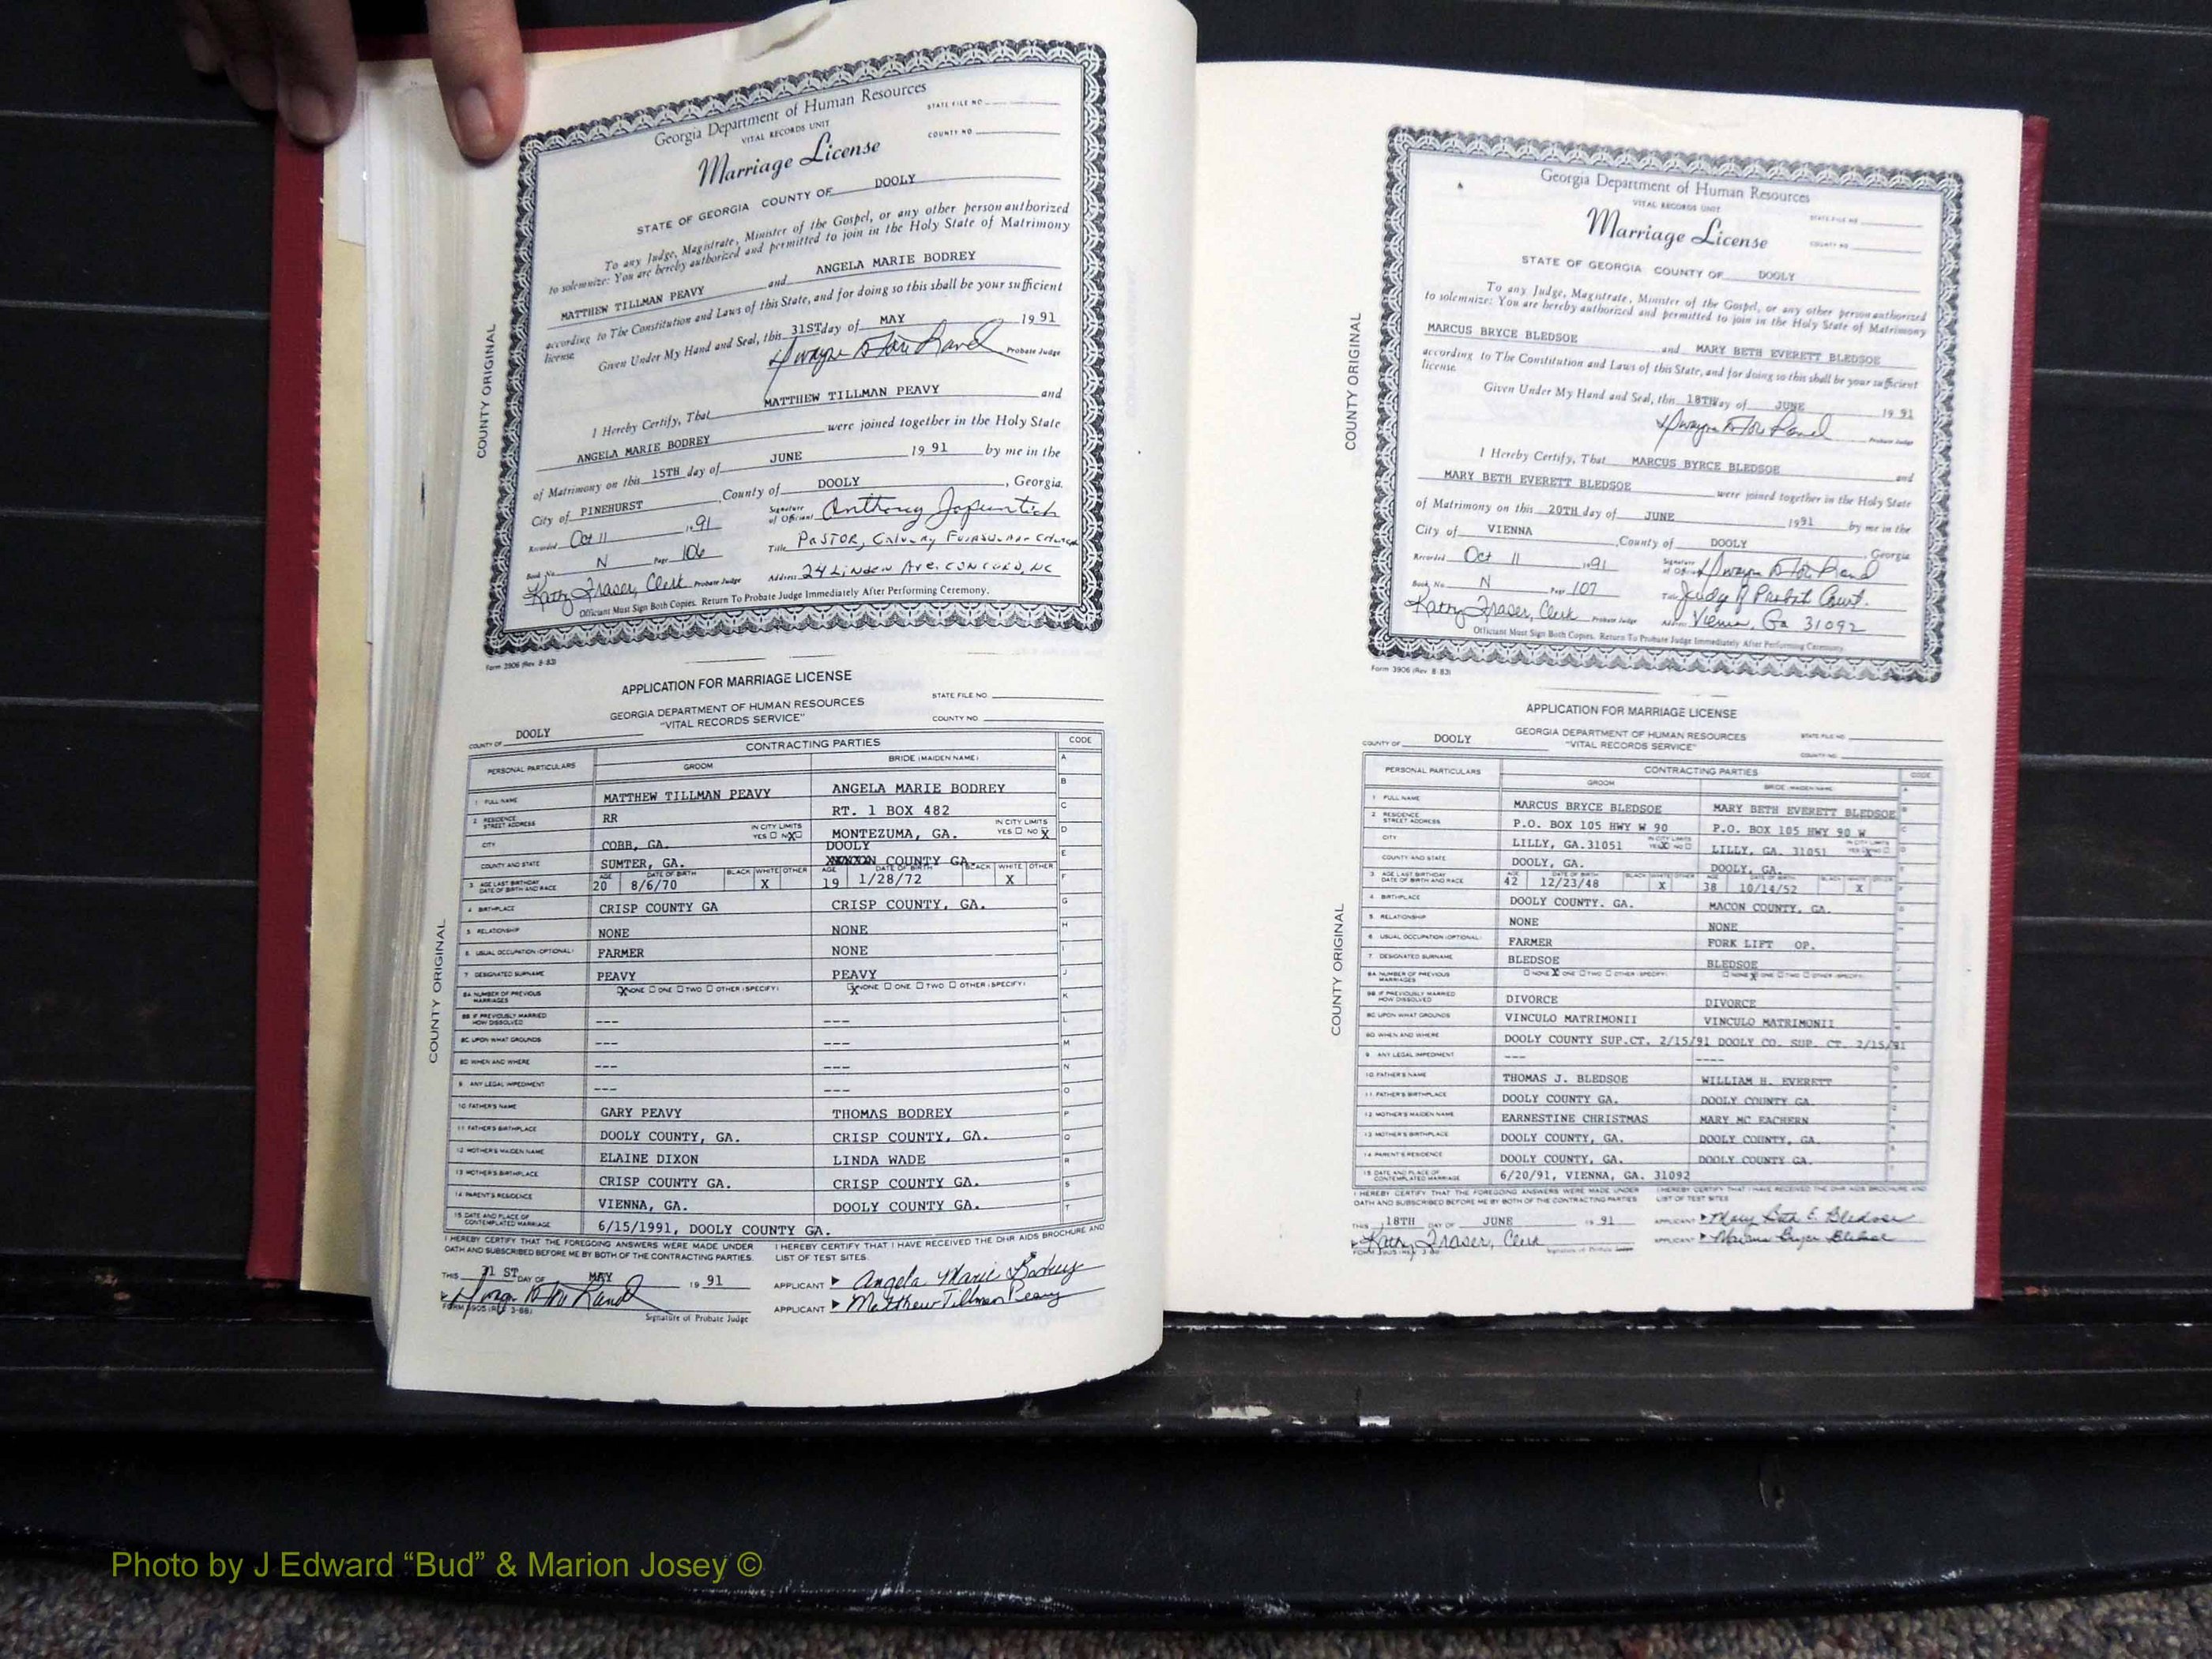 Georgia Department of Human Resources
VITAL RECORDS UNIT
STATE FILE NO
COUNTY NO
Marriage License
STATE OF GEORGIA COUNTY OF DOOLY
To any Judge, Magistrate, Minister of the Gospel, or any other person authorized
to solemnize: You are hereby authorized and permitted to join in the Holy State of Matrimony
MATTHEW TILLMAN PEAVY and ANGELA MARIE BODREY
according to The Constitution and Laws of this State, and for doing so this shall be your sufficient
license.
Given Under My Hand and Seal, this 31ST day of MAY 19 91
Probate Judge
I Hereby Certify, That MATTHEW TILLMAN PEAVY and
ANGELA MARIE BODREY were joined together in the Holy State
of Matrimony on this 15TH day of JUNE 19 91 by me in the
City of PINEHURST, County of DOOLY, Georgia.
Recorded Oct 11 1991 Signature of Official Anthony Japuntich
Book No. N Page 106 Title PASTOR, Calvary
Kathy Fraser, Clerk Probate Judge Address 24 Linden Ave. CONCORD, NC
Officiant Must Sign Both Copies. Return To Probate Judge Immediately After Performing Ceremony.
COUNTY ORIGINAL
Form 3906 (Rev. 8-83)
APPLICATION FOR MARRIAGE LICENSE
GEORGIA DEPARTMENT OF HUMAN RESOURCES
"VITAL RECORDS SERVICE"
STATE FILE NO.
COUNTY NO.
COUNTY OF DOOLY
PERSONAL PARTICULARS CONTRACTING PARTIES CODE
GROOM BRIDE (MAIDEN NAME)
1 FULL NAME MATTHEW TILLMAN PEAVY ANGELA MARIE BODREY
2 RESIDENCE STREET ADDRESS RR RT. 1 BOX 482
CITY COBB, GA. IN CITY LIMITS YES NO X MONTEZUMA, GA. IN CITY LIMITS YES NO X
COUNTY AND STATE SUMTER, GA. DOOLY COUNTY GA.
3 AGE LAST BIRTHDAY DATE OF BIRTH AND RACE AGE 20 DATE OF BIRTH 8/6/70 BLACK WHITE X OTHER AGE 19 DATE OF BIRTH 1/28/72 BLACK WHITE X OTHER
4 BIRTHPLACE CRISP COUNTY GA CRISP COUNTY, GA.
5 RELATIONSHIP NONE NONE
6 USUAL OCCUPATION (OPTIONAL) FARMER NONE
7 DESIGNATED SURNAME PEAVY PEAVY
8A NUMBER OF PREVIOUS MARRIAGES X NONE ONE TWO OTHER (SPECIFY) X NONE ONE TWO OTHER (SPECIFY)
8B IF PREVIOUSLY MARRIED HOW DISSOLVED --- ---
8C UPON WHAT GROUNDS --- ---
8D WHEN AND WHERE --- ---
9 ANY LEGAL IMPEDIMENT --- ---
10 FATHER'S NAME GARY PEAVY THOMAS BODREY
11 FATHER'S BIRTHPLACE DOOLY COUNTY, GA. CRISP COUNTY, GA.
12 MOTHER'S MAIDEN NAME ELAINE DIXON LINDA WADE
13 MOTHER'S BIRTHPLACE CRISP COUNTY GA. CRISP COUNTY GA.
14 PARENT'S RESIDENCE VIENNA, GA. DOOLY COUNTY GA.
15 DATE AND PLACE OF CONTEMPLATED MARRIAGE 6/15/1991, DOOLY COUNTY GA.
I HEREBY CERTIFY THAT THE FOREGOING ANSWERS WERE MADE UNDER
OATH AND SUBSCRIBED BEFORE ME BY BOTH OF THE CONTRACTING PARTIES.
I HEREBY CERTIFY THAT I HAVE RECEIVED THE DHR AIDS BROCHURE AND
LIST OF TEST SITES.
THIS 31 ST DAY OF MAY 19 91 APPLICANT Angela Marie Bodrey
APPLICANT Matthew Tillman Peavy
FORM 3905 (REV. 3-88)
Signature of Probate Judge
COUNTY ORIGINAL
Georgia Department of Human Resources
VITAL RECORDS UNIT
STATE FILE NO
COUNTY NO
Marriage License
STATE OF GEORGIA COUNTY OF DOOLY
To any Judge, Magistrate, Minister of the Gospel, or any other person authorized
to solemnize: You are hereby authorized and permitted to join in the Holy State of Matrimony
MARCUS BRYCE BLEDSOE and MARY BETH EVERETT BLEDSOE
according to The Constitution and Laws of this State, and for doing so this shall be your sufficient
license.
Given Under My Hand and Seal, this 18TH day of JUNE 19 91
Probate Judge
I Hereby Certify, That MARCUS BYRCE BLEDSOE and
MARY BETH EVERETT BLEDSOE were joined together in the Holy State
of Matrimony on this 20TH day of JUNE 1991 by me in the
City of VIENNA, County of DOOLY, Georgia
Recorded Oct 11 1991 Signature of Official
Book No. N Page 107 Title Judge of Probate Court.
Kathy Fraser, Clerk Probate Judge Address Vienna, Ga 31092
Officiant Must Sign Both Copies. Return To Probate Judge Immediately After Performing Ceremony.
COUNTY ORIGINAL
Form 3906 (Rev. 8-83)
APPLICATION FOR MARRIAGE LICENSE
GEORGIA DEPARTMENT OF HUMAN RESOURCES
"VITAL RECORDS SERVICE"
STATE FILE NO.
COUNTY NO.
COUNTY OF DOOLY
PERSONAL PARTICULARS CONTRACTING PARTIES CODE
GROOM BRIDE (MAIDEN NAME)
1 FULL NAME MARCUS BRYCE BLEDSOE MARY BETH EVERETT BLEDSOE
2 RESIDENCE STREET ADDRESS P.O. BOX 105 HWY W 90 P.O. BOX 105 HWY 90 W
CITY LILLY, GA.31051 IN CITY LIMITS YES X NO LILLY, GA. 31051 IN CITY LIMITS YES X NO
COUNTY AND STATE DOOLY, GA. DOOLY, GA.
3 AGE LAST BIRTHDAY DATE OF BIRTH AND RACE AGE 42 DATE OF BIRTH 12/23/48 BLACK WHITE X OTHER AGE 38 DATE OF BIRTH 10/14/52 BLACK WHITE X OTHER
4 BIRTHPLACE DOOLY COUNTY. GA. MACON COUNTY, GA.
5 RELATIONSHIP NONE NONE
6 USUAL OCCUPATION (OPTIONAL) FARMER FORK LIFT OP.
7 DESIGNATED SURNAME BLEDSOE BLEDSOE
8A NUMBER OF PREVIOUS MARRIAGES NONE X ONE TWO OTHER (SPECIFY) NONE X ONE TWO OTHER (SPECIFY)
8B IF PREVIOUSLY MARRIED HOW DISSOLVED DIVORCE DIVORCE
8C UPON WHAT GROUNDS VINCULO MATRIMONII VINCULO MATRIMONII
8D WHEN AND WHERE DOOLY COUNTY SUP.CT. 2/15/91 DOOLY CO. SUP. CT. 2/15/91
9 ANY LEGAL IMPEDIMENT --- ----
10 FATHER'S NAME THOMAS J. BLEDSOE WILLIAM H. EVERETT
11 FATHER'S BIRTHPLACE DOOLY COUNTY GA. DOOLY COUNTY GA.
12 MOTHER'S MAIDEN NAME EARNESTINE CHRISTMAS MARY MC EACHERN
13 MOTHER'S BIRTHPLACE DOOLY COUNTY, GA. DOOLY COUNTY, GA.
14 PARENT'S RESIDENCE DOOLY COUNTY, GA. DOOLY COUNTY GA.
15 DATE AND PLACE OF CONTEMPLATED MARRIAGE 6/20/91, VIENNA, GA. 31092
I HEREBY CERTIFY THAT THE FOREGOING ANSWERS WERE MADE UNDER
OATH AND SUBSCRIBED BEFORE ME BY BOTH OF THE CONTRACTING PARTIES
I HEREBY CERTIFY THAT I HAVE RECEIVED THE DHR AIDS BROCHURE AND
LIST OF TEST SITES
THIS 18TH DAY OF JUNE 19 91 APPLICANT Mary Beth E. Bledsoe
Kathy Fraser, Clerk APPLICANT Marcus Bryce Bledsoe
Signature of Probate Judge
COUNTY ORIGINAL
Photo by J Edward “Bud” & Marion Josey ©